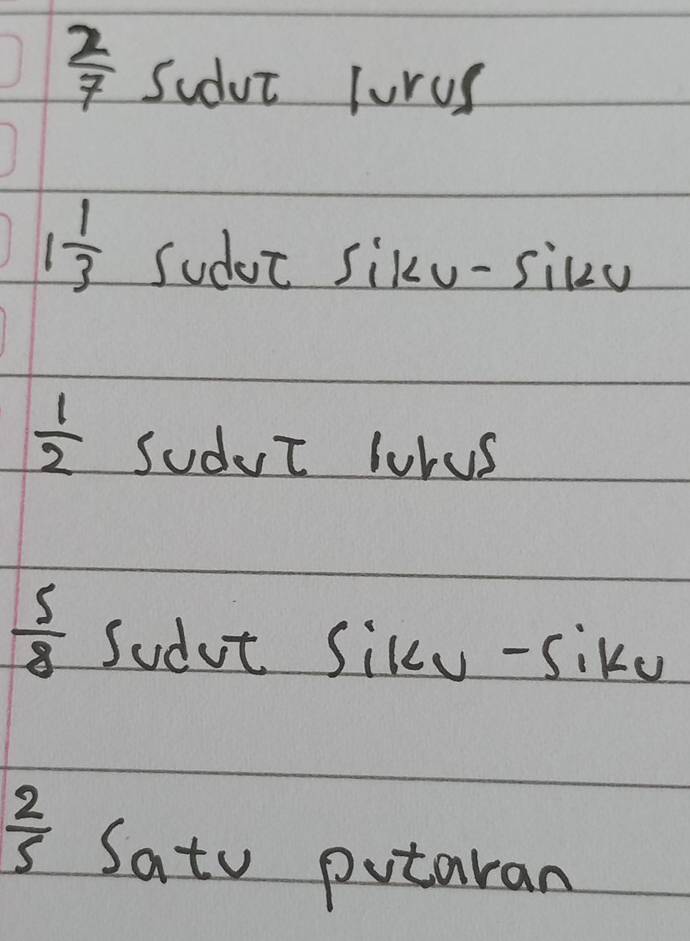 2/7 sudut lurus
1 1/3 sudut siku-siku
1/2 sudut lurus
5/8 sudut siku-siku
2/5 satu putaran